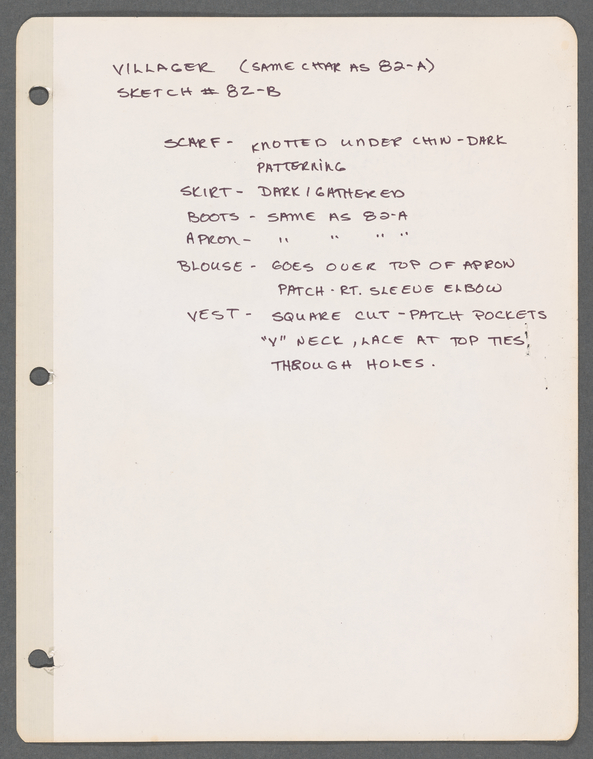 VILLAGER (SAME CHAR AS 82-A)
SKETCH # 82-B
SCARF - KNOTTED UNDER CHIN - DARK
PATTERNING
SKIRT - DARK / GATHERED
BOOTS - SAME AS 82-A
APRON - " " " "
BLOUSE - GOES OVER TOP OF APRON
PATCH - RT. SLEEVE ELBOW
VEST - SQUARE CUT - PATCH POCKETS
"V" NECK, LACE AT TOP TIES
THROUGH HOLES.